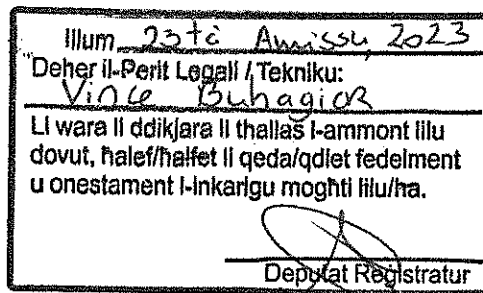 Illum 23 ta' Awissu, 2023
Deher il-Perit Legali / Tekniku:
Vince Buhagiar
Li wara li ddikjara li tħallas l-ammont lilu
dovut, ħalef/ħalfet li qeda/qdiet fedelment
u onestament l-inkarigu mogħti lilu/ha.
Deputat Reġistratur